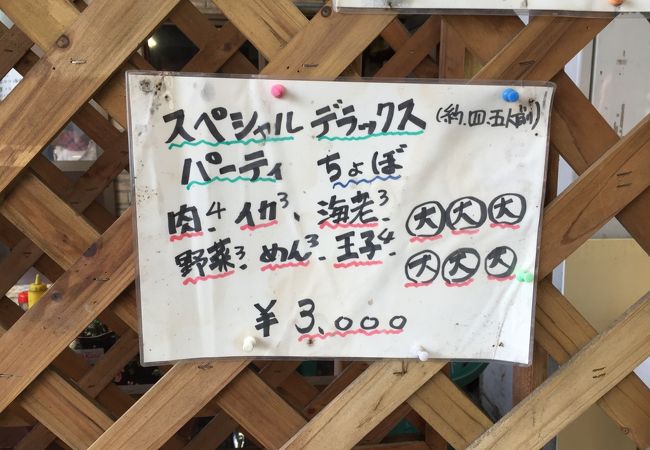 スペシャル デラックス (約.四.五人前)
パーティ ちょぼ
肉4. イカ3. 海老3 大大大
野菜3. めん3. 王子4. 大大大
¥3.000